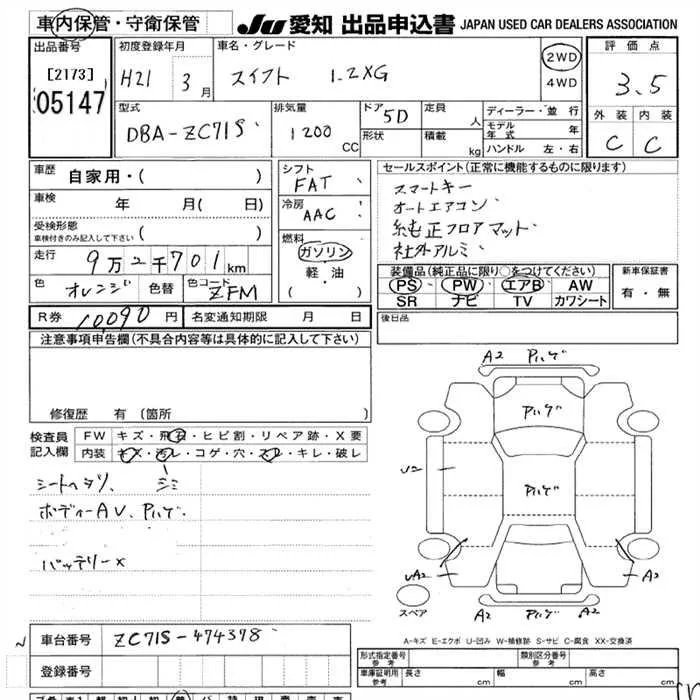 車内保管・守衛保管 JU 愛知 出品申込書 JAPAN USED CAR DEALERS ASSOCIATION
出品番号 初度登録年月 車名・グレード 2WD 4WD 評価点
[2173] H21 3月 スイフト 1.2XG 3.5
05147
型式 排気量 ドア 5D 定員 人 ディーラー・並行 外装 内装
DBA-ZC71S 1200 CC 形状 積載 kg モデル年式 年 C C
ハンドル 左・右
車歴 自家用・( ) シフト FAT セールスポイント(正常に機能するものに限ります)
車検 年 月( 日) 冷房 AAC スマートキー
オートエアコン
受検形態 車検付きのみ記入して下さい ( ) 燃料 純正フロアマット
社外アルミ
走行 9万2千701km ガソリン 軽・油 ( ) 装備品(純正品に限り○をつけてください) 新車保証書
色 オレンジ 色替 色コード ZFM PS PW エアB AW 有・無
SR ナビ TV カワシート
R券 10,090円 名変通知期限 月 日 後日品
注意事項申告欄(不具合内容等は具体的に記入して下さい)
修復歴 有 (箇所
検査員記入欄 FW キズ・飛石・ヒビ割・リペア跡・X要
内装 キズ・汚レ・コゲ・穴・スレ・キレ・破レ
シートヘタリ、 シミ
ボディーAU、Pハゲ
バッテリーX
A2 Pハゲ
Pハゲ
U2
Pハゲ
UA2 A2
スペア A2 Pハゲ A2
A-キズ E-エクボ U-凹み W-補修跡 S-サビ C-腐食 XX-交換済
N 車台番号 ZC71S-474378
登録番号
形式指定番号 参考 類別区分番号 参考
車庫証明用 参考 長さ cm 幅 cm 高さ cm